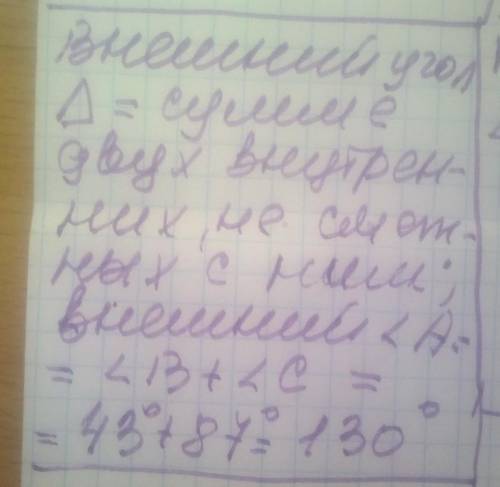 Внешний угол
Δ = сумме
двух внутрен-
них, не смеж-
ных с ним;
внешний ∠A =
= ∠B + ∠C =
= 43° + 87° = 130°